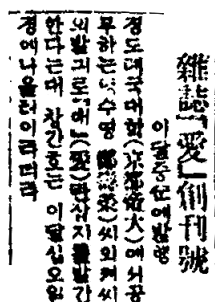 雜誌『愛』創刊號
이달중순에발행
경도데국대학(京都帝大)에서공
부하는 수영 씨외게씨
의발긔로『애』(愛)라는잡지를발간
한다는대 창간호는 이달십오일
경에나올터이라더라